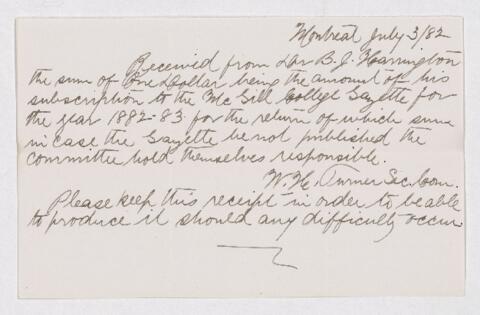 Montreal July 3/82
Received from Dr B. J. Harrington
the sum of One Dollar being the amount of his
subscription to the McGill College Gazette for
the year 1882-83 for the return of which sum
in case the Gazette be not published the
committee hold themselves responsible.
W. H. Turner Sec. Com.
Please keep this receipt in order to be able
to produce it should any difficulty occur.